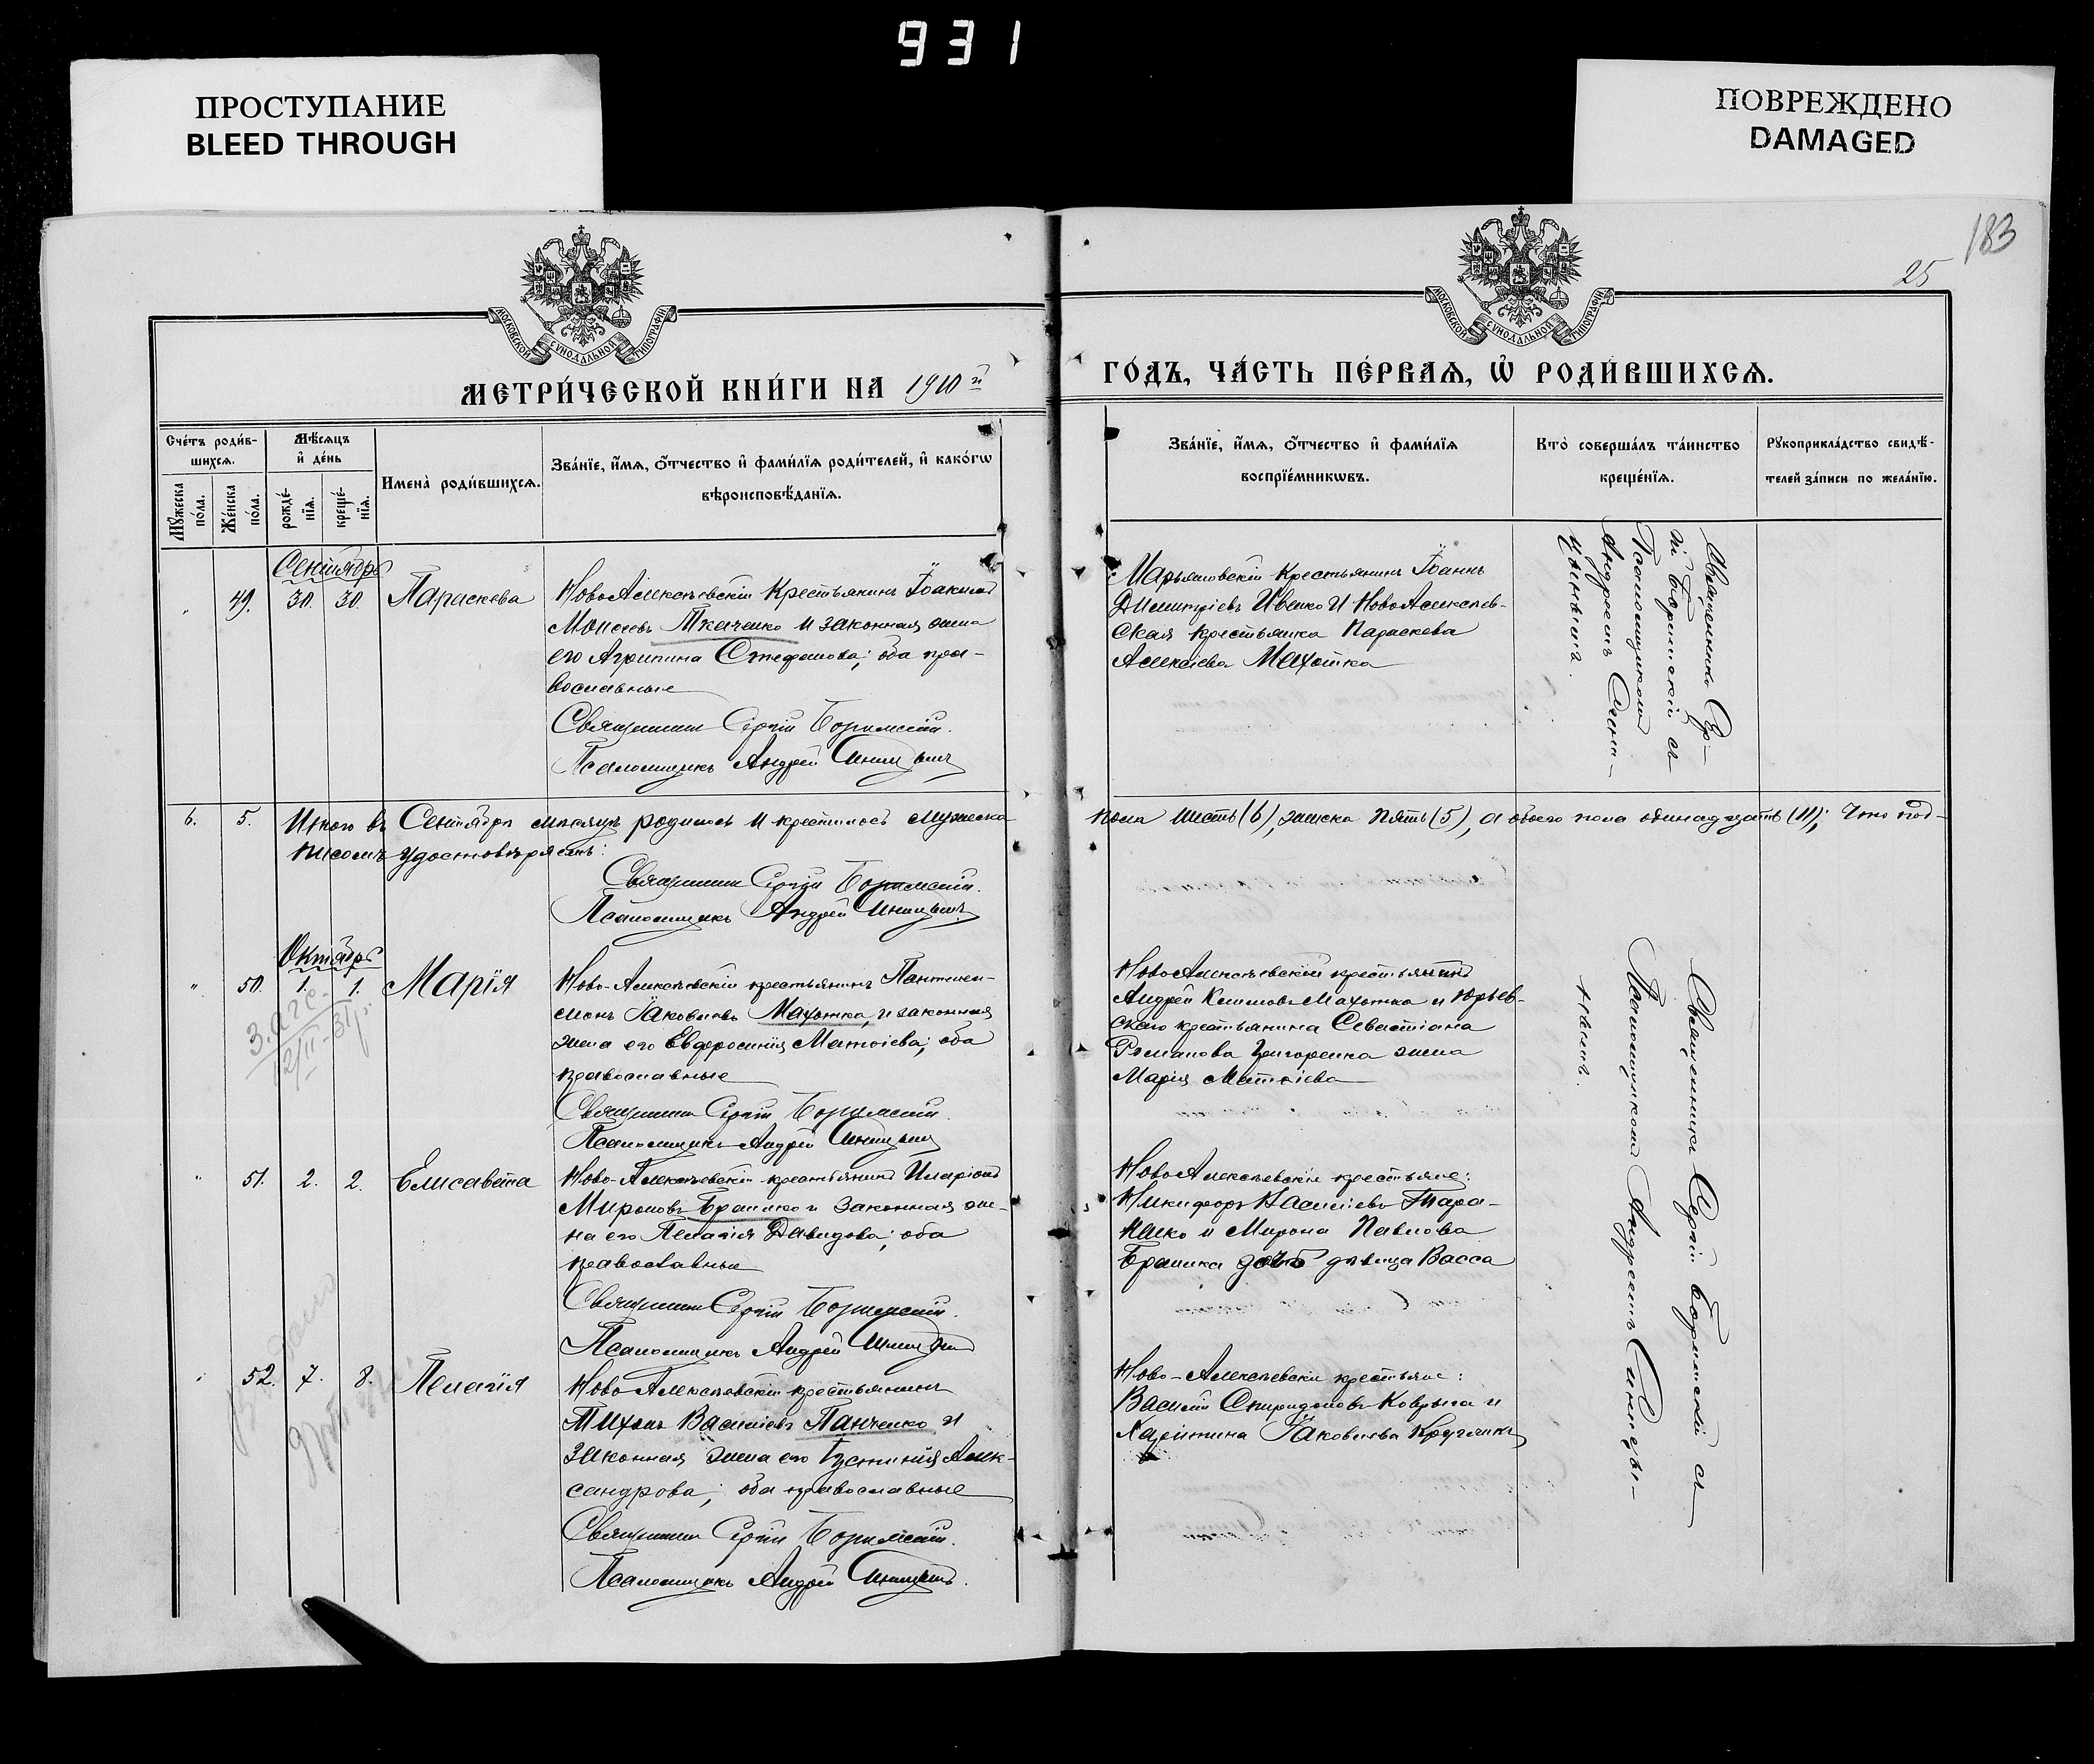 931
ПРОСТУПАНИЕ
BLEED THROUGH
ПОВРЕЖДЕНО
DAMAGED
183
25
МОСКОВСКОЙ СѴНОДАЛЬНОЙ ТИПОГРАФІИ
МОСКОВСКОЙ СѴНОДАЛЬНОЙ ТИПОГРАФІИ
МЕТРИ́ЧЕСКОЙ КНИ́ГИ НА 1910й
ГО́ДЪ, ЧА́СТЬ ПЕ́РВАѦ, Ѡ҆ РОДИ́ВШИХСѦ.
Сче́тъ роди́в-
шихсѧ.
Мꙋ́жеска по́ла.
Же́нска по́ла.
Мѣ́сѧцъ
и҆ де́нь
рожде́-
нїѧ.
креще́-
нїѧ.
Имена̀ роди́вшихсѧ.
Зва́нїе, и҆́мѧ, ѻ҆́тчество и҆ фами́лїѧ роди́телей, и҆ како́гѡ
вѣроисповѣ́данїѧ.
Зва́нїе, и҆́мѧ, ѻ҆́тчество и҆ фами́лїѧ
воспрїе́мникѡвъ.
Кто̀ соверша́лъ та́инство
креще́нїѧ.
Рꙋкоприкла́дство свидѣ́-
телей за́писи по жела́нїю.
Сентябрь
49. 30. 30. Параскева
НовоАлексѣевскій Крестьянинъ Іоакимъ
Моисеевъ Ткаченко и законная жена
его Агрипина Стефанова; оба пра-
вославные
Священникъ Сергій Боримскій.
Псаломщикъ Андрей Синицынъ
Марьяновскій Крестьянинъ Іоаннъ
Димитріевъ Ивенко и НовоАлексѣев-
ская крестьянка Параскева
Алексіева Махотка
Священникъ Сер-
гій Боримскій съ
Псаломщикомъ
Андреемъ Сини-
цынымъ.
6. 5. Итого въ Сентябрѣ мѣсяцѣ родилось и крестилось мужеска
пола шесть (6), женска пять (5), а обоего пола одинадцать (11); Что под-
писомъ удостовѣряемъ:
Священникъ Сергій Боримскій.
Псаломщикъ Андрей Синицынъ
Октябрь
50. 1. 1. Марія
Ново-Алексѣевскій крестьянинъ Пантелей-
монъ Іаковлевъ Махотка, и законная
жена его Евфросинія Матвіева; оба
православные
Священникъ Сергій Боримскій.
Псаломщикъ Андрей Синицынъ
НовоАлексѣевскій крестьянинъ
Андрей Климовъ Махотка и Юрьев-
скаго крестьянина Севастіана
Романова Григоренка жена
Марія Матвіева
51. 2. 2. Елисавета
Ново-Алексѣевскій крестьянинъ Иларіонъ
Мироновъ Браико и законная же-
на его Пелагія Давидова; оба
православные
Священникъ Сергій Боримскій.
Псаломщикъ Андрей Синицынъ
НовоАлексѣевскіе крестьяне:
Никифоръ Василіевъ Тара-
нико и Мирона Павлова
Браика дочь дѣвица Васса
52. 7. 8. Пелагія
НовоАлексѣевскій крестьянинъ
Тихонъ Василіевъ Панченко и
законная жена его Іустинія Алек-
сандрова; оба православные
Священникъ Сергій Боримскій.
Псаломщикъ Андрей Синицынъ.
Ново-Алексѣевскіе крестьяне:
Василій Спиридоновъ Коврыга и
Харитина Іаковлева Кругликъ
Священникъ Сергій Боримскій съ
Псаломщикомъ Андреемъ Сиицы-
нымъ.